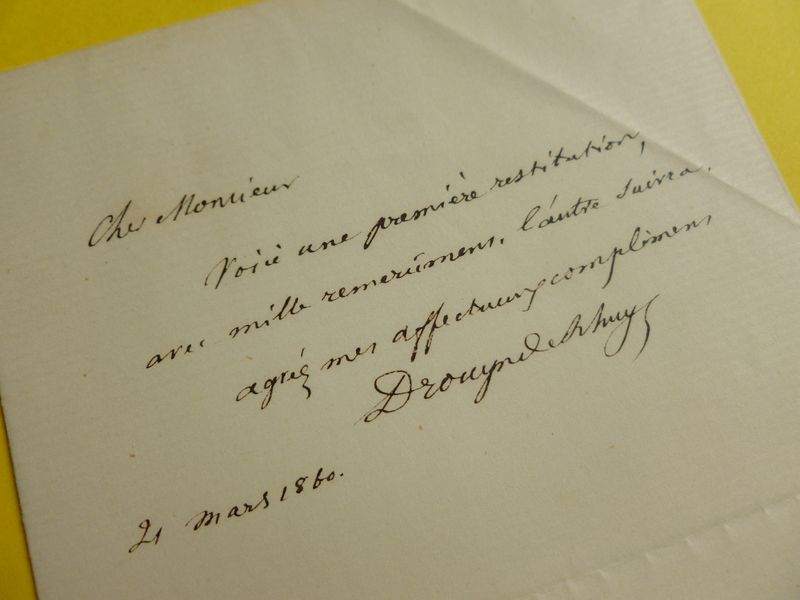 Cher Monsieur
Voici une première restitution,
avec mille remercîmens. l'autre suivra.
agréez mes affectueux complimens
Drouyn de Lhuys
21 mars 1860.